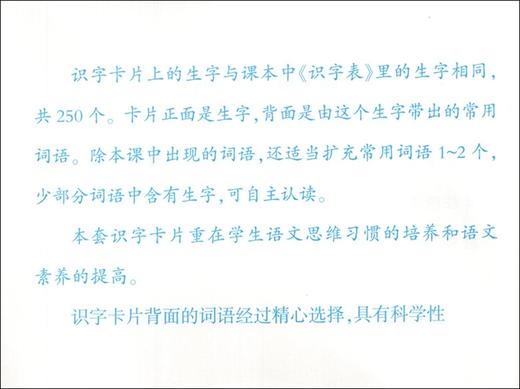 识字卡片上的生字与课本中《识字表》里的生字相同，
共250个。卡片正面是生字，背面是由这个生字带出的常用
词语。除本课中出现的词语，还适当扩充常用词语1~2个，
少部分词语中含有生字，可自主认读。
本套识字卡片重在学生语文思维习惯的培养和语文
素养的提高。
识字卡片背面的词语经过精心选择，具有科学性